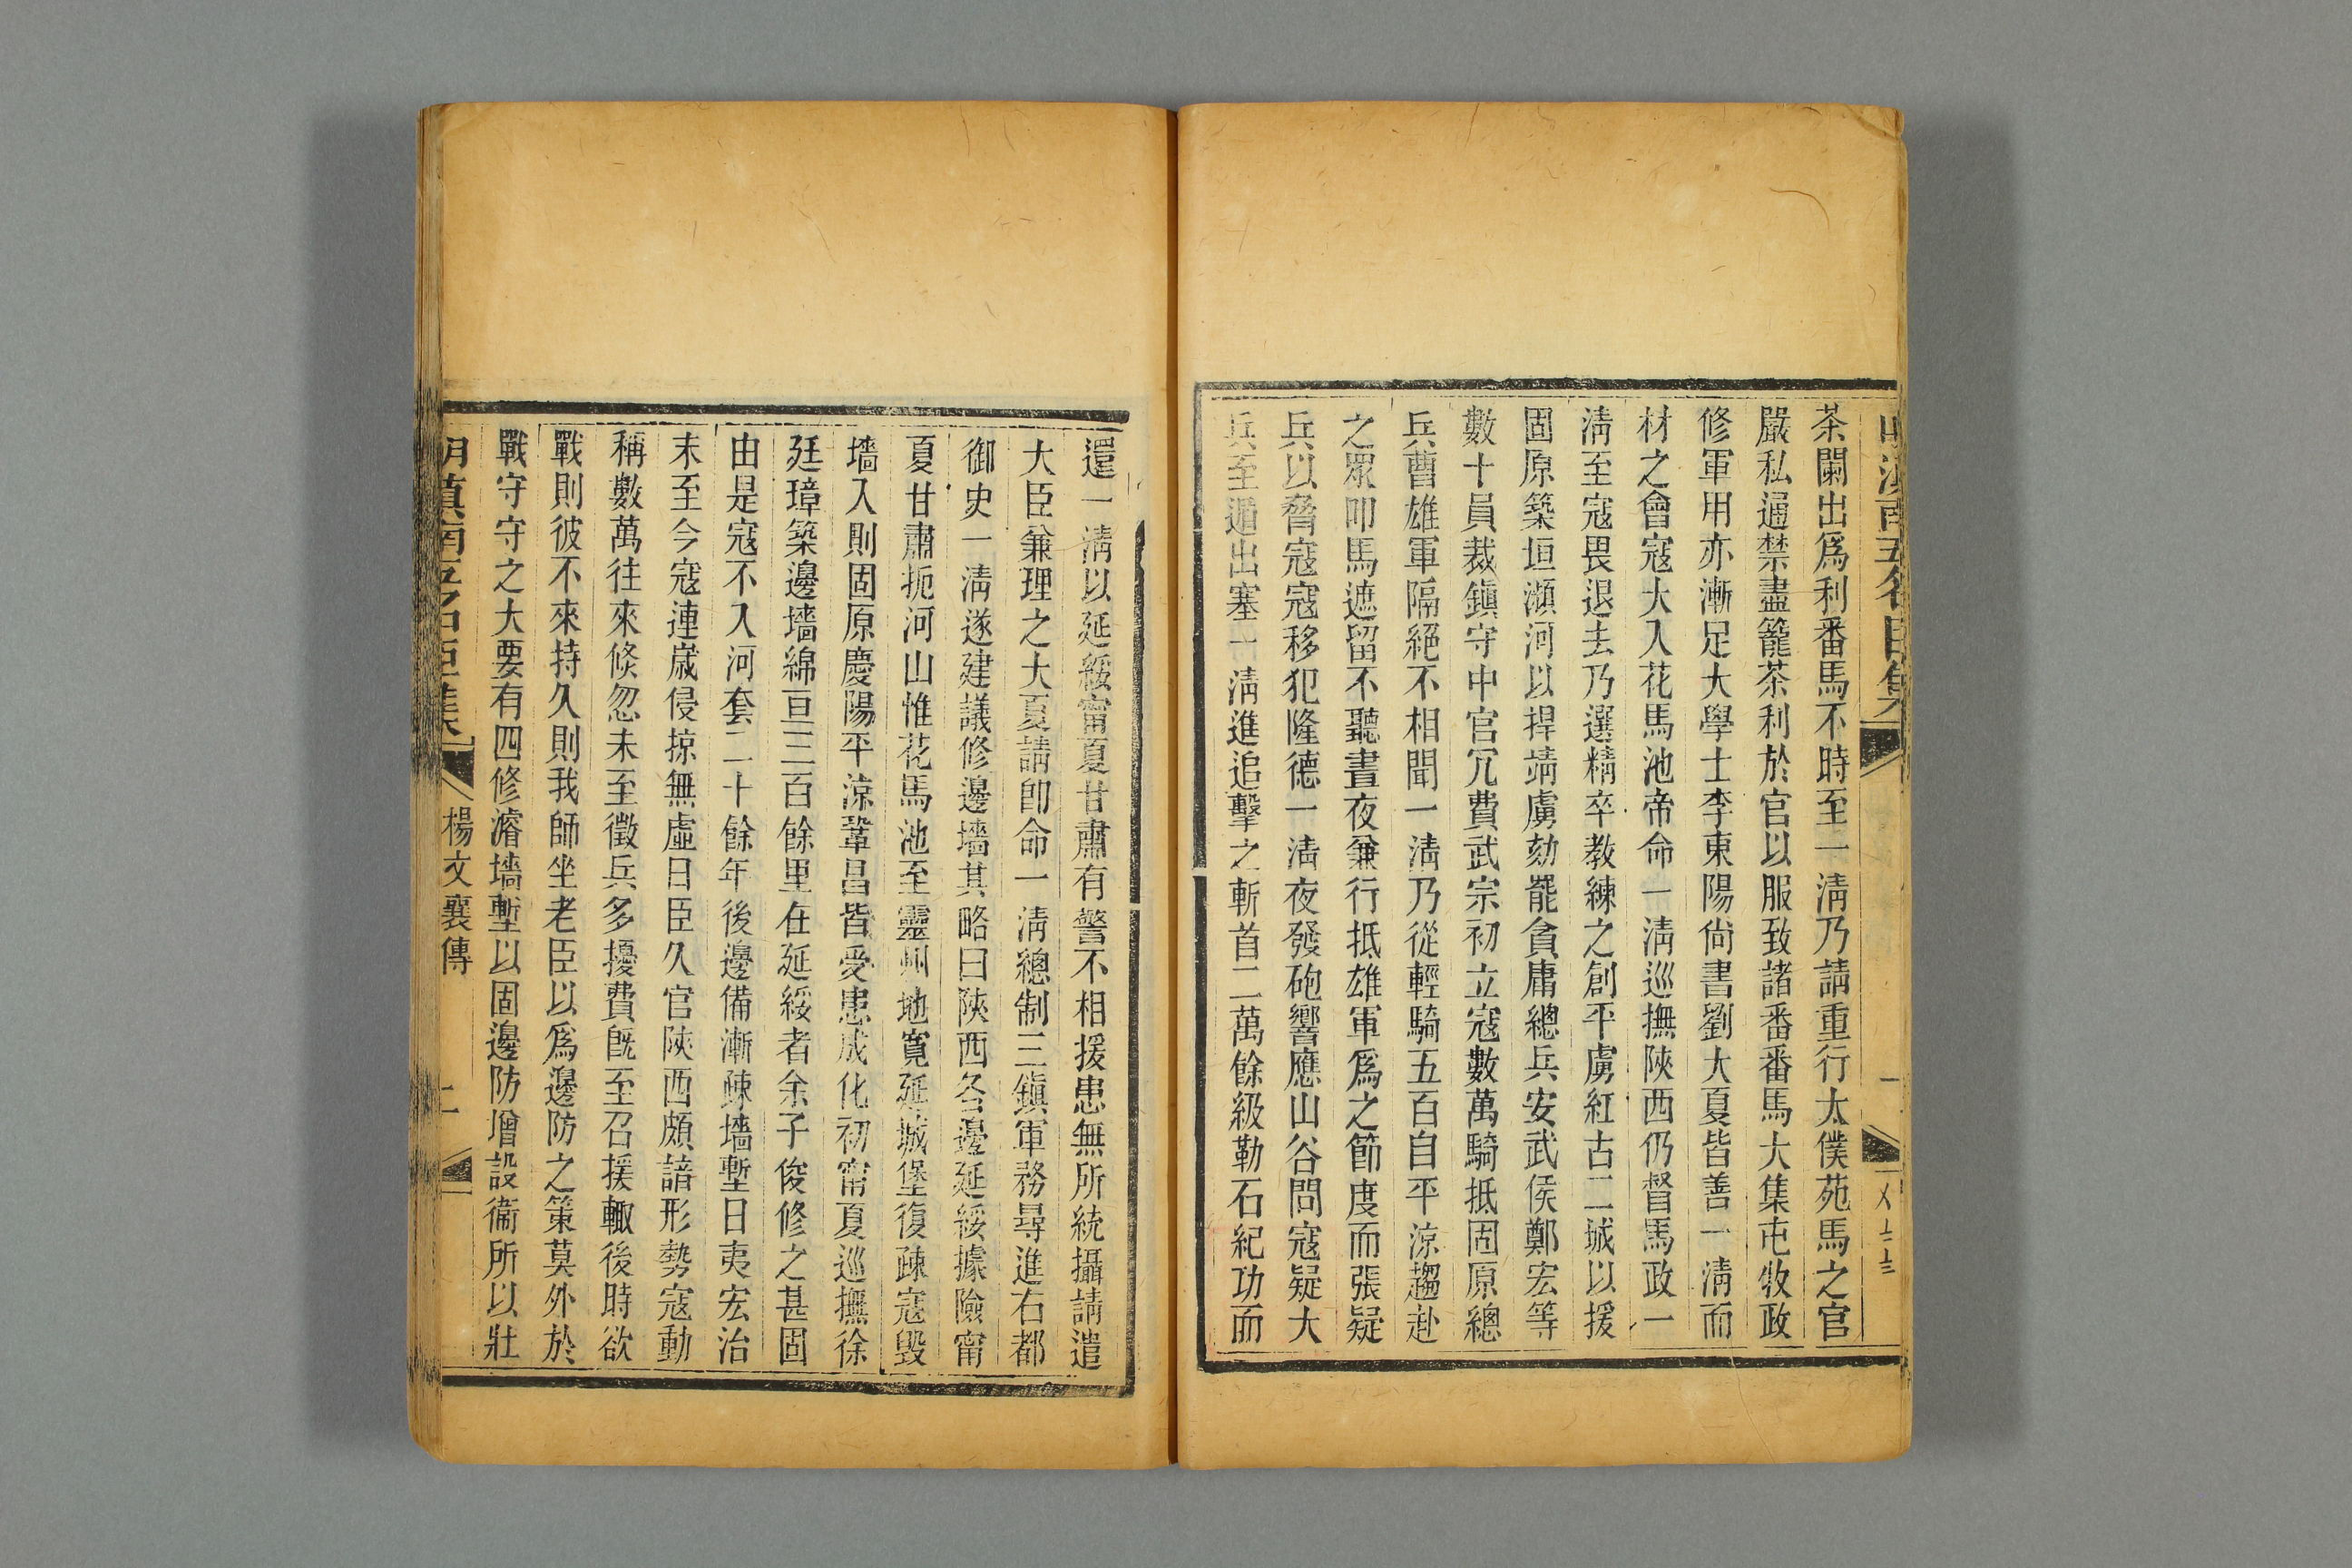 茶闌出爲利番馬不時至一淸乃請重行太僕苑馬之官
嚴私通禁盡籠茶利於官以服致諸番番馬大集屯牧政
修軍用亦漸足大學士李東陽尙書劉大夏皆善一淸而
材之會寇大入花馬池帝命一淸巡撫陝西仍督馬政一
淸至寇畏退去乃選精卒教練之創平虜紅古二城以援
固原築垣瀕河以捍靖虜劾罷貪庸總兵安武侯鄭宏等
數十員裁鎭守中官冗費武宗初立寇數萬騎抵固原總
兵曹雄軍隔絕不相聞一淸乃從輕騎五百自平涼趨赴
之眾叩馬遮留不聽晝夜兼行抵雄軍爲之節度而張疑
兵以脅寇寇移犯隆德一淸夜發砲響應山谷問寇疑大
兵至遁出塞一淸進追擊之斬首二萬餘級勒石紀功而
還一淸以延綏甯夏甘肅有警不相援患無所統攝請遣
大臣兼理之大夏請卽命一淸總制三鎭軍務尋進右都
御史一淸遂建議修邊墻其略曰陝西各邊延綏據險甯
夏甘肅扼河山惟花馬池至靈州地寬延城堡復疎寇毀
墻入則固原慶陽平涼鞏昌皆受患成化初甯夏巡撫徐
廷璋築邊墻綿亘三百餘里在延綏者余子俊修之甚固
由是寇不入河套二十餘年後邊備漸疎墻塹日夷宏治
末至今寇連嵗侵掠無虛日臣久官陝西頗諳形勢寇動
稱數萬往來倐忽未至徵兵多擾費旣至召援輙後時欲
戰則彼不來持久則我師坐老臣以爲邊防之策莫外於
戰守守之大要有四修濬墻塹以固邊防增設衞所以壯
明滇南五名臣集
楊文襄傳
二